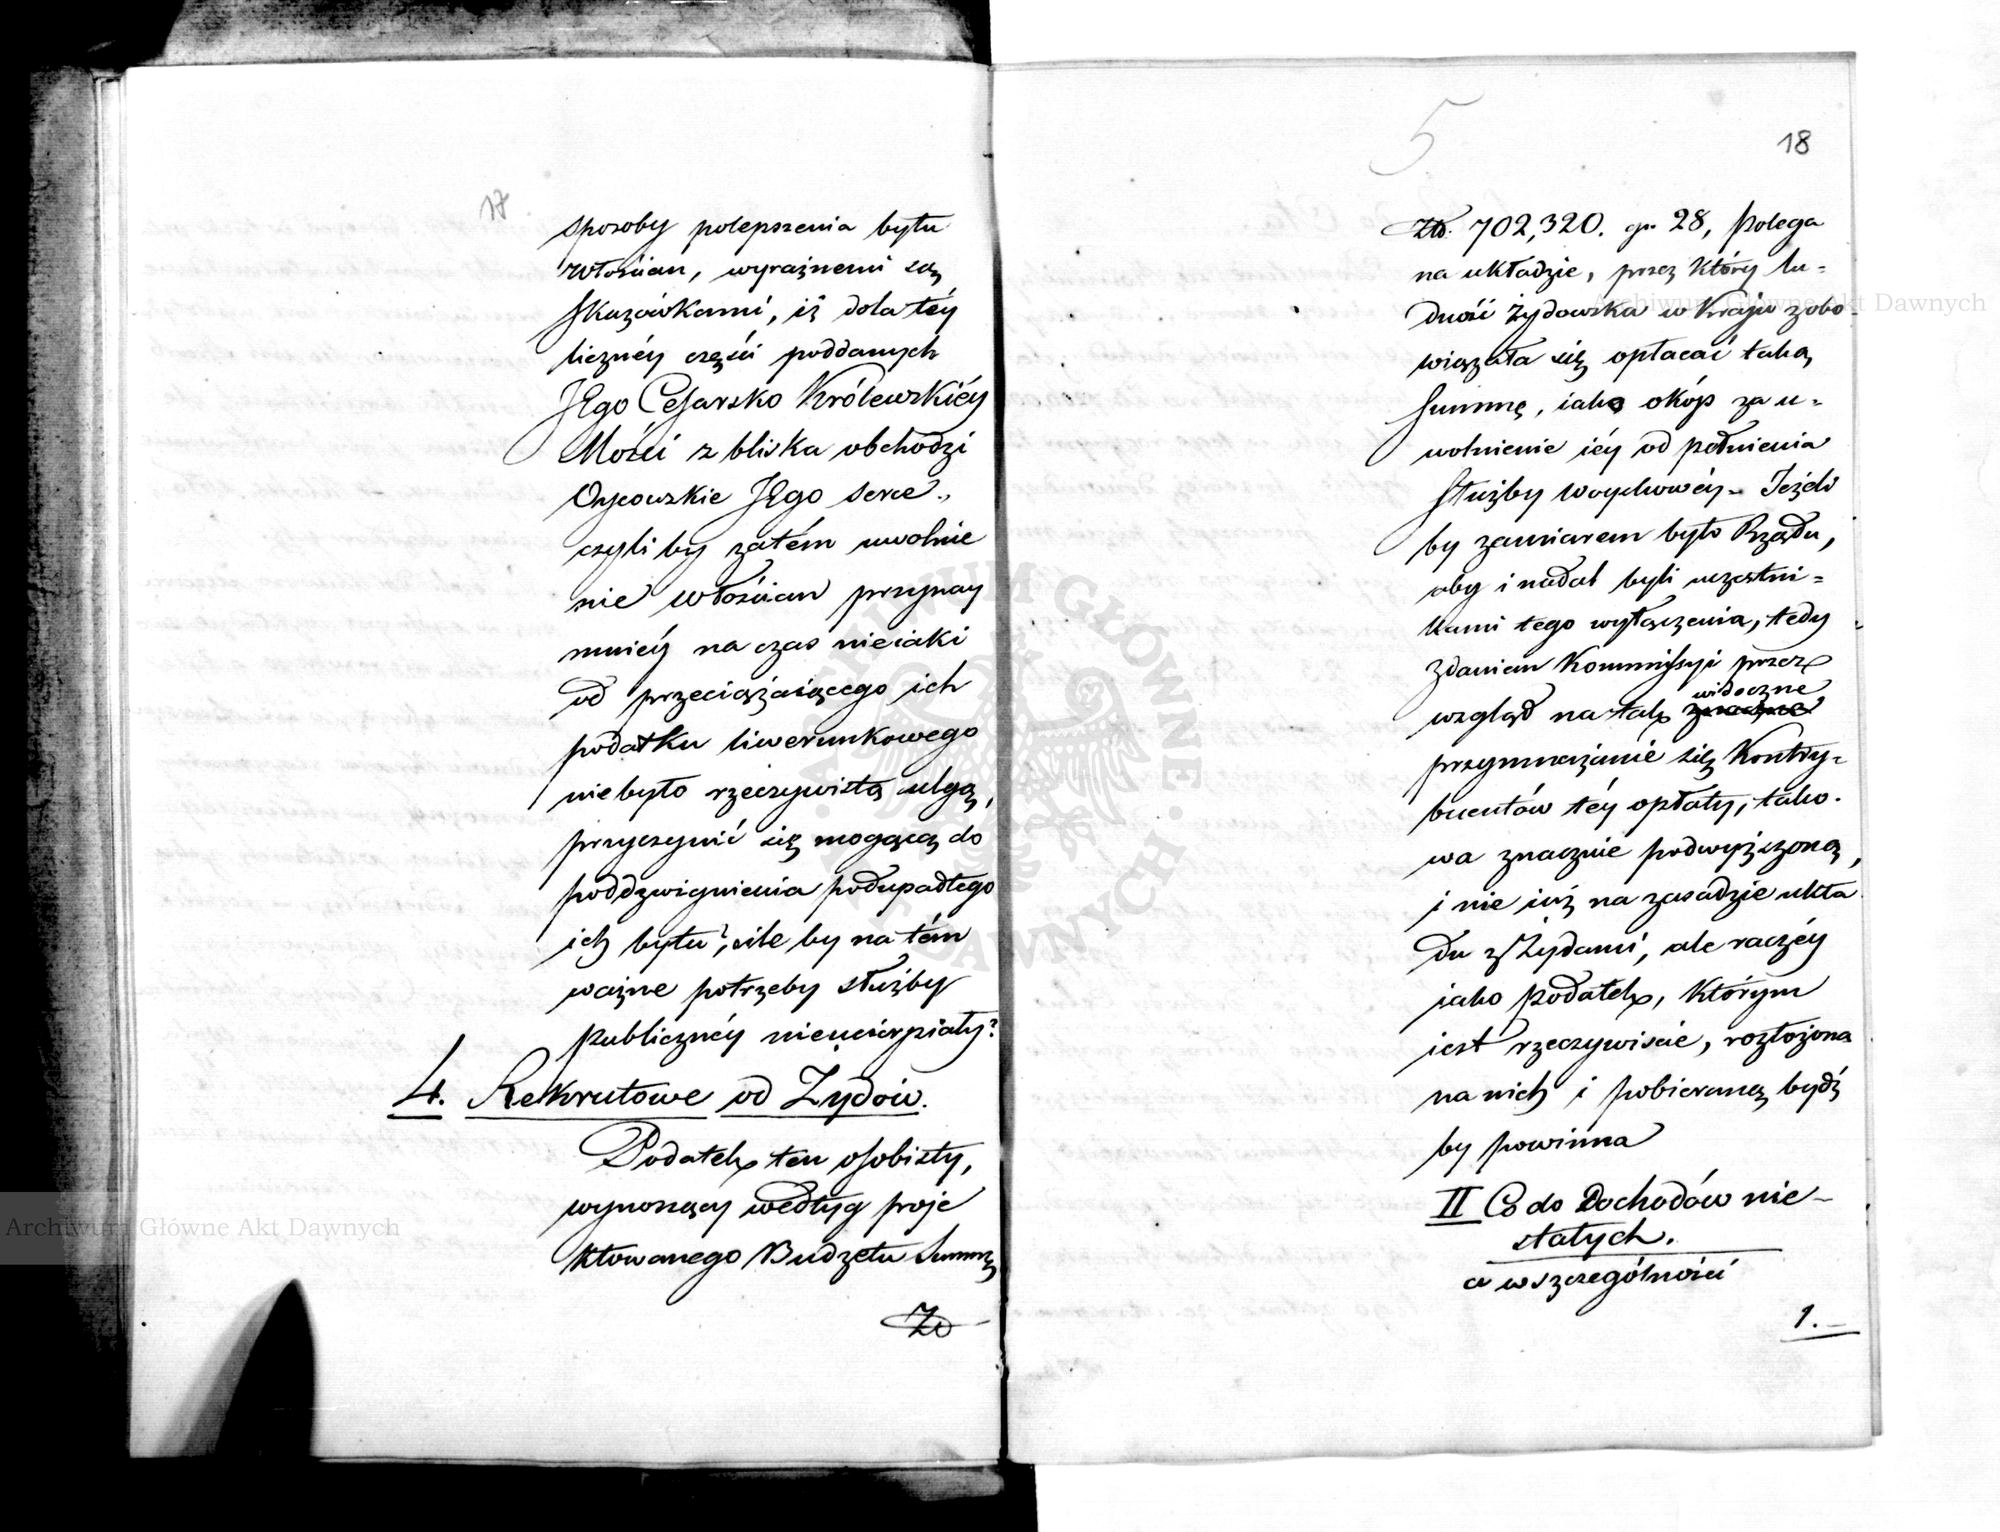 17
sposoby polepszenia bytu
włościan, wyraźnemi są
skazówkami, iż dola téy
licznéy części poddanych
JEgo Cesarsko Królewskiéy
Mości z bliska obchodzi
Oycowskie JEgo serce.,
czyliby zatém uwolnie
nie włościan przynay
mniéy na czas nieiaki
od przeciążaiącego ich
podatku liwerunkowego
niebyło rzeczywistą ulgą,
przyczynić się mogącą do
poddzwignienia podupadłego
ich bytu?, ile by na tém
ważne potrzeby służby
publicznéy nieucierpiały?
4. Rekrutowe od Żydów.
Podatek ten osobisty,
wynoszący według proje
ktowanego Budżetu Summę
Zł
5
18
Złł. 702,320. gr. 28, polega
na układzie, przez który lu=
dność Żydowska w Kraju zobo
wiązała się opłacać taką
Summę, iako okóp za u=
wolnienie iéy od pełnienia
służby woyskowéy. Jeżeli
by zamiarem było Rządu,
aby i nadal byli uczestni=
kami tego wyłączenia, tedy
zdaniem Kommissyi przez
wzgląd na tak znaczne widoczne
przymnażanie się Kontry=
buentów téy opłaty, tako.
wa znacznie podwyższoną,
i nie iuż na zasadzie ukła
du z Żydami, ale raczéy
iako podatek, którym
iest rzeczywiscie, rozłożoną
na nich i pobieraną bydź
by powinna
II Co do Dochodów nie-
stałych.
a w szczególności
1.
Archiwum Główne Akt Dawnych
Archiwum Główne Akt Dawnych
ARCHIWUM GŁÓWNE AKT DAWNYCH